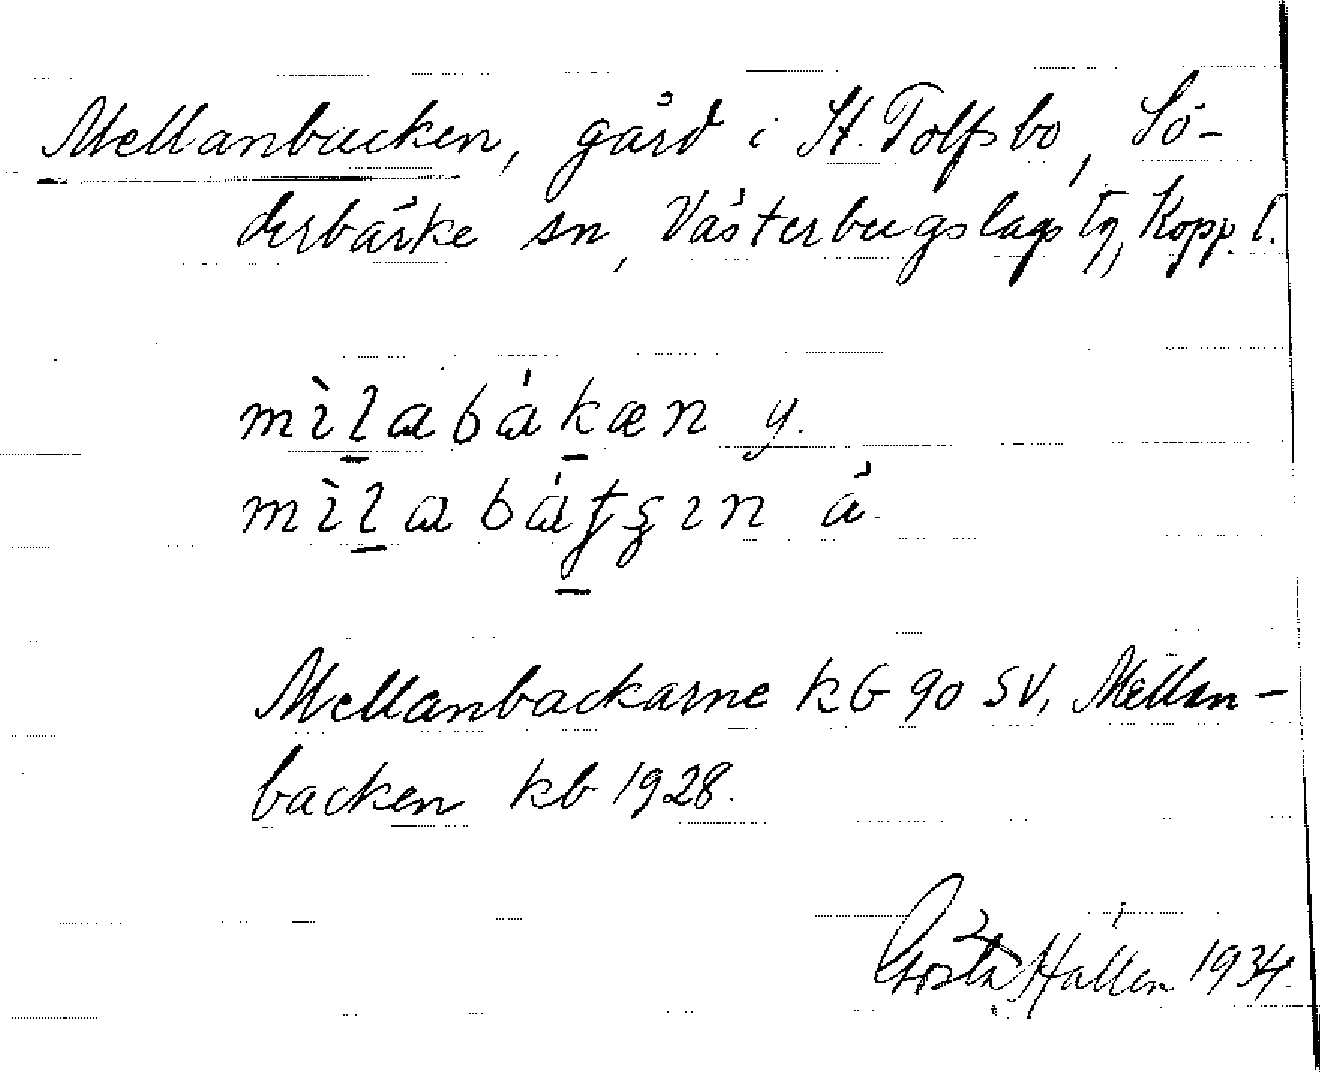 Mellanbacken, gård i St. Tolfsbo, Sö-
derbärke sn, Västerbergslags tg, Kopp. l.
mìlabákæn y.
mìlabátʂın ä.
Mellanbackarne kG 90 SV, Mellan-
backen kb 1928.
Gösta Hallén 1934.